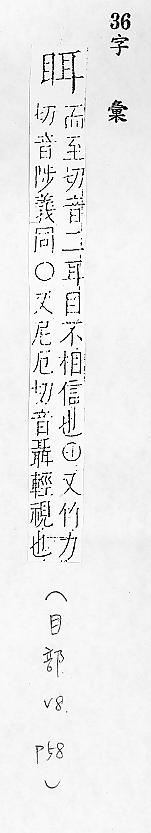 36字彙
眲
而至切音二耳目不相信也①又竹力
切音陟義同○又尼戹切音聶輕視也
(目部 V8. P58)